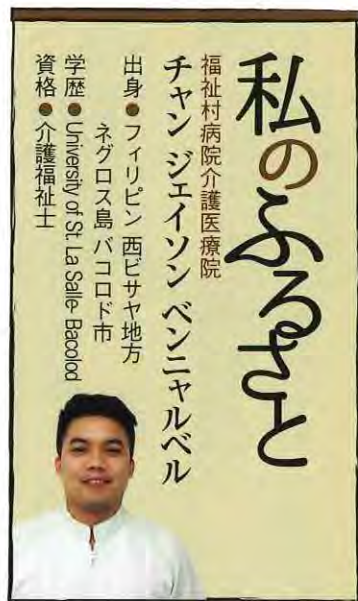 私のふるさと
福祉村病院介護医療院
チャン ジェイソン ベンニャルベル
出身●フィリピン 西ビサヤ地方
ネグロス島 バコロド市
学歴●University of St. La Salle- Bacolod
資格●介護福祉士